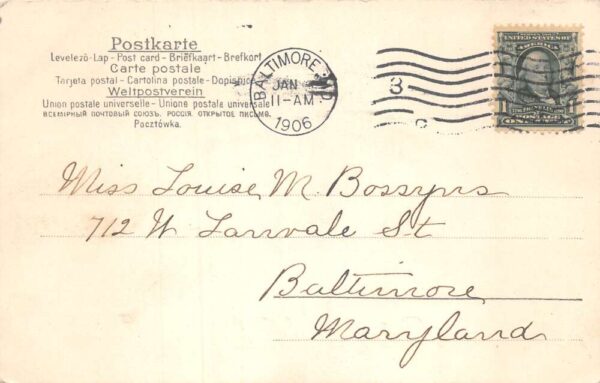 Postkarte
Levelező-Lap - Post card - Briefkaart - Brefkort
Carte postale
Tarjeta postal - Cartolina postale - Dopisnice
Weltpostverein
Union postale universelle - Unione postale universale
ВСЕМІРНЫЙ ПОЧТОВЫЙ СОЮЗЪ. РОССІЯ. ОТКРЫТОЕ ПИСЬМО.
Pocztówka.
BALTIMORE, MD.
JAN
11-AM
1906
3
UNITED STATES OF
AMERICA
1 1
Miss Louise M. Bossyns
712 W Lanvale St
Baltimore
Maryland